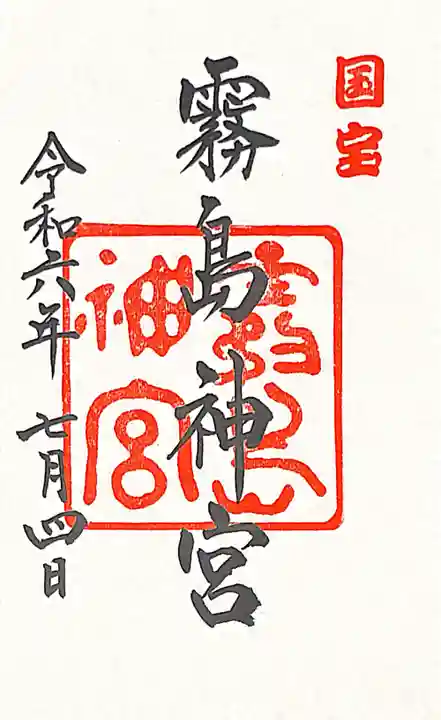 国宝
霧島神宮
霧島神宮
令和六年 七月四日